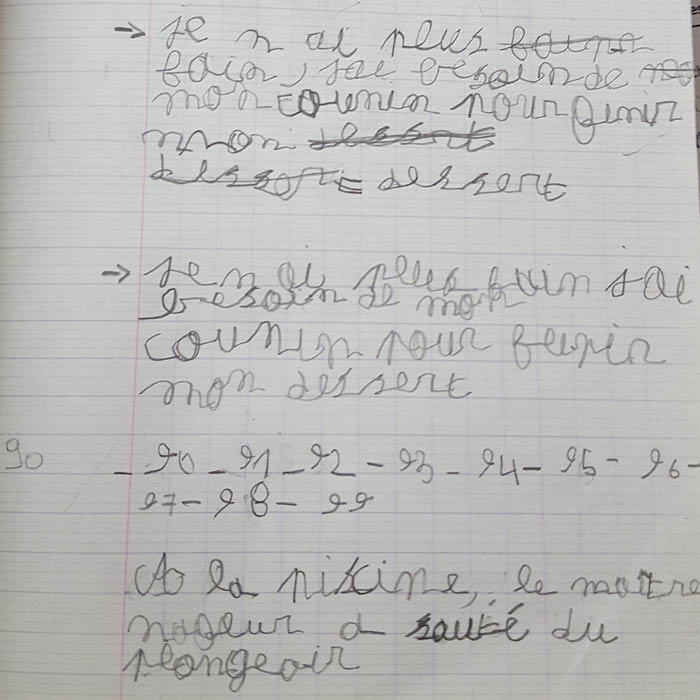 → Je n ai plus
fain, j'ai besoin de
mon counin pour finir
mon
dessert
→ Je n ai plus fain j ai
besoin de mon
counin pour feinir
mon dessert
90 - 90 - 91 - 92 - 93 - 94 - 95 - 96 -
97 - 98 - 99
A la piscine, le maitre
nageur a sauté du
plongeoir